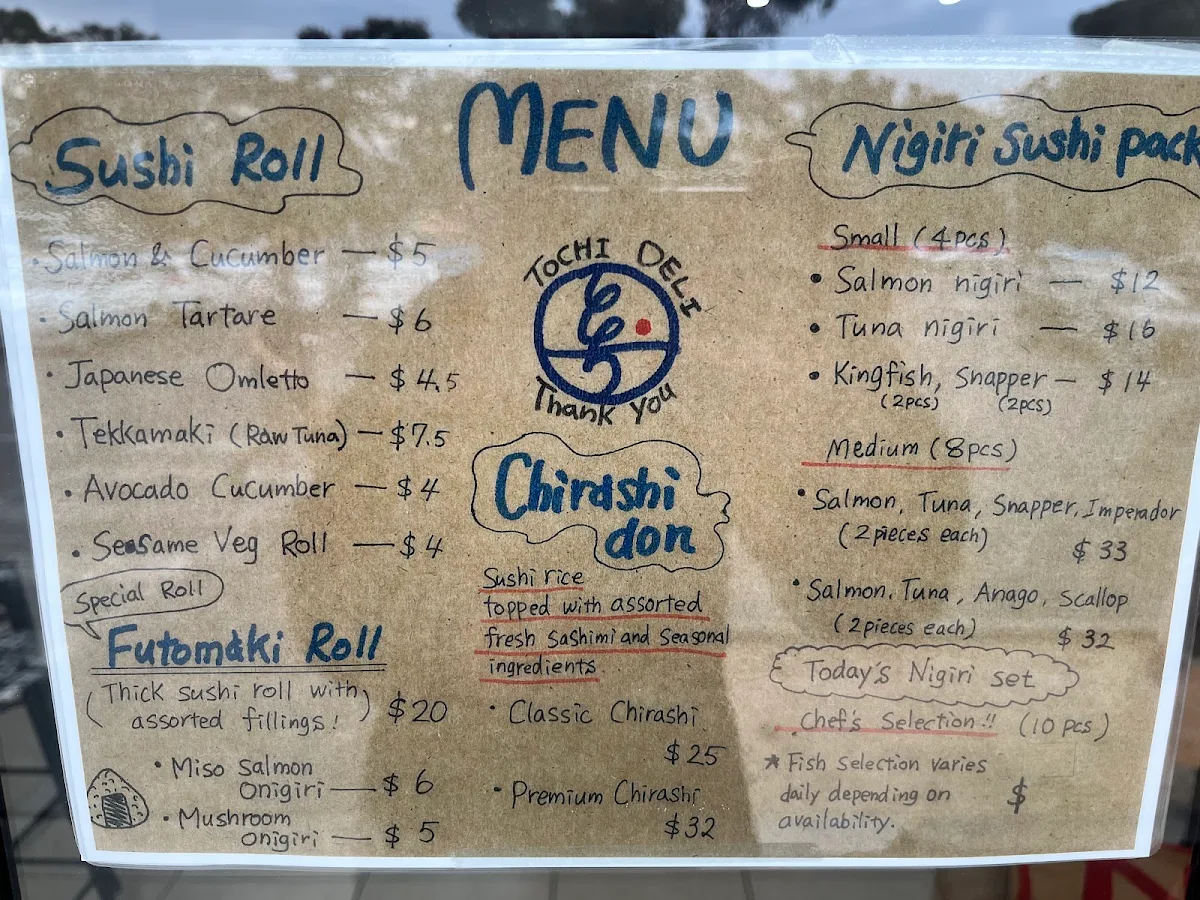 MENU
Sushi Roll
Salmon & Cucumber — $5
Salmon Tartare — $6
Japanese Omletto — $4.5
Tekkamaki (Raw Tuna) — $7.5
Avocado Cucumber — $4
Sesame Veg Roll — $4
Special Roll
Futomaki Roll
(Thick sushi roll with
assorted fillings!) $20
Miso Salmon
Onigiri — $6
Mushroom
Onigiri — $5
TOCHI DELI
Thank you
Chirashi
don
Sushi rice
topped with assorted
fresh sashimi and seasonal
ingredients.
Classic Chirashi
$25
Premium Chirashi
$32
Nigiri Sushi pack
Small (4pcs)
Salmon nigiri — $12
Tuna nigiri — $16
Kingfish, Snapper — $14
(2pcs) (2pcs)
Medium (8pcs)
Salmon, Tuna, Snapper, Imperador
(2pieces each)
$33
Salmon, Tuna, Anago, Scallop
(2pieces each)
$32
Today's Nigiri set
Chef's Selection!! (10 pcs)
* Fish selection varies
daily depending on $
availability.